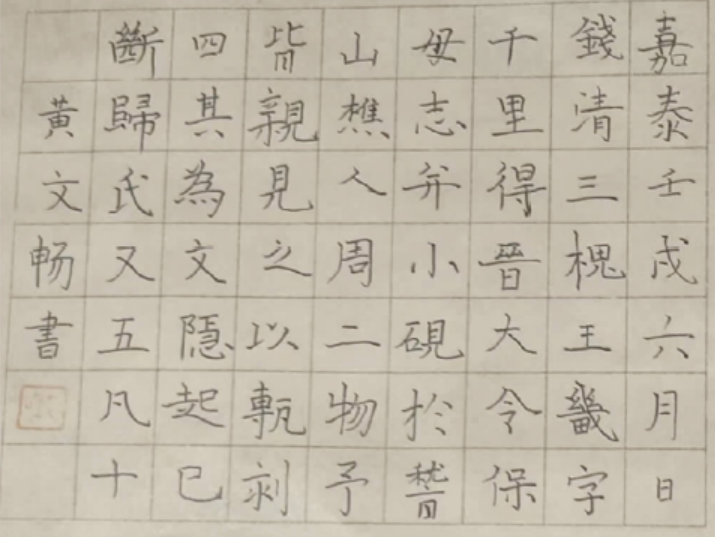 嘉泰壬戌六月日
錢清三槐王畿字
千里得晉大令保
母志并小硯於稽
山樵人周二物予
皆親見之以甎剥
四其為文隱起已
斷歸氏又五凡十
黃文畅書